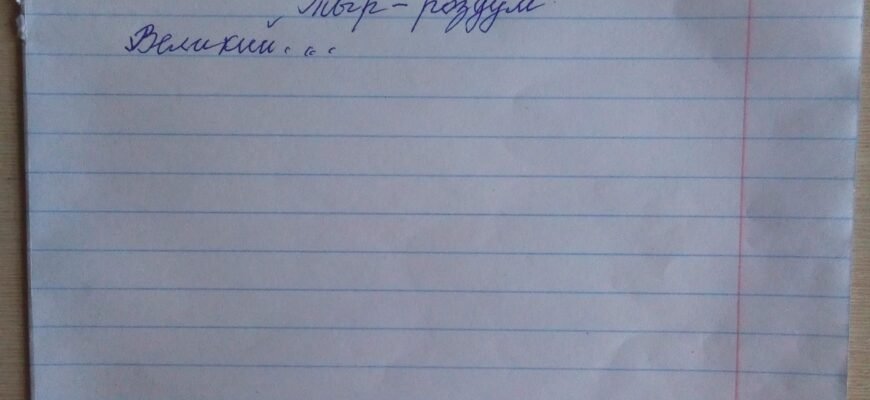 Твір - роздум
Великий...